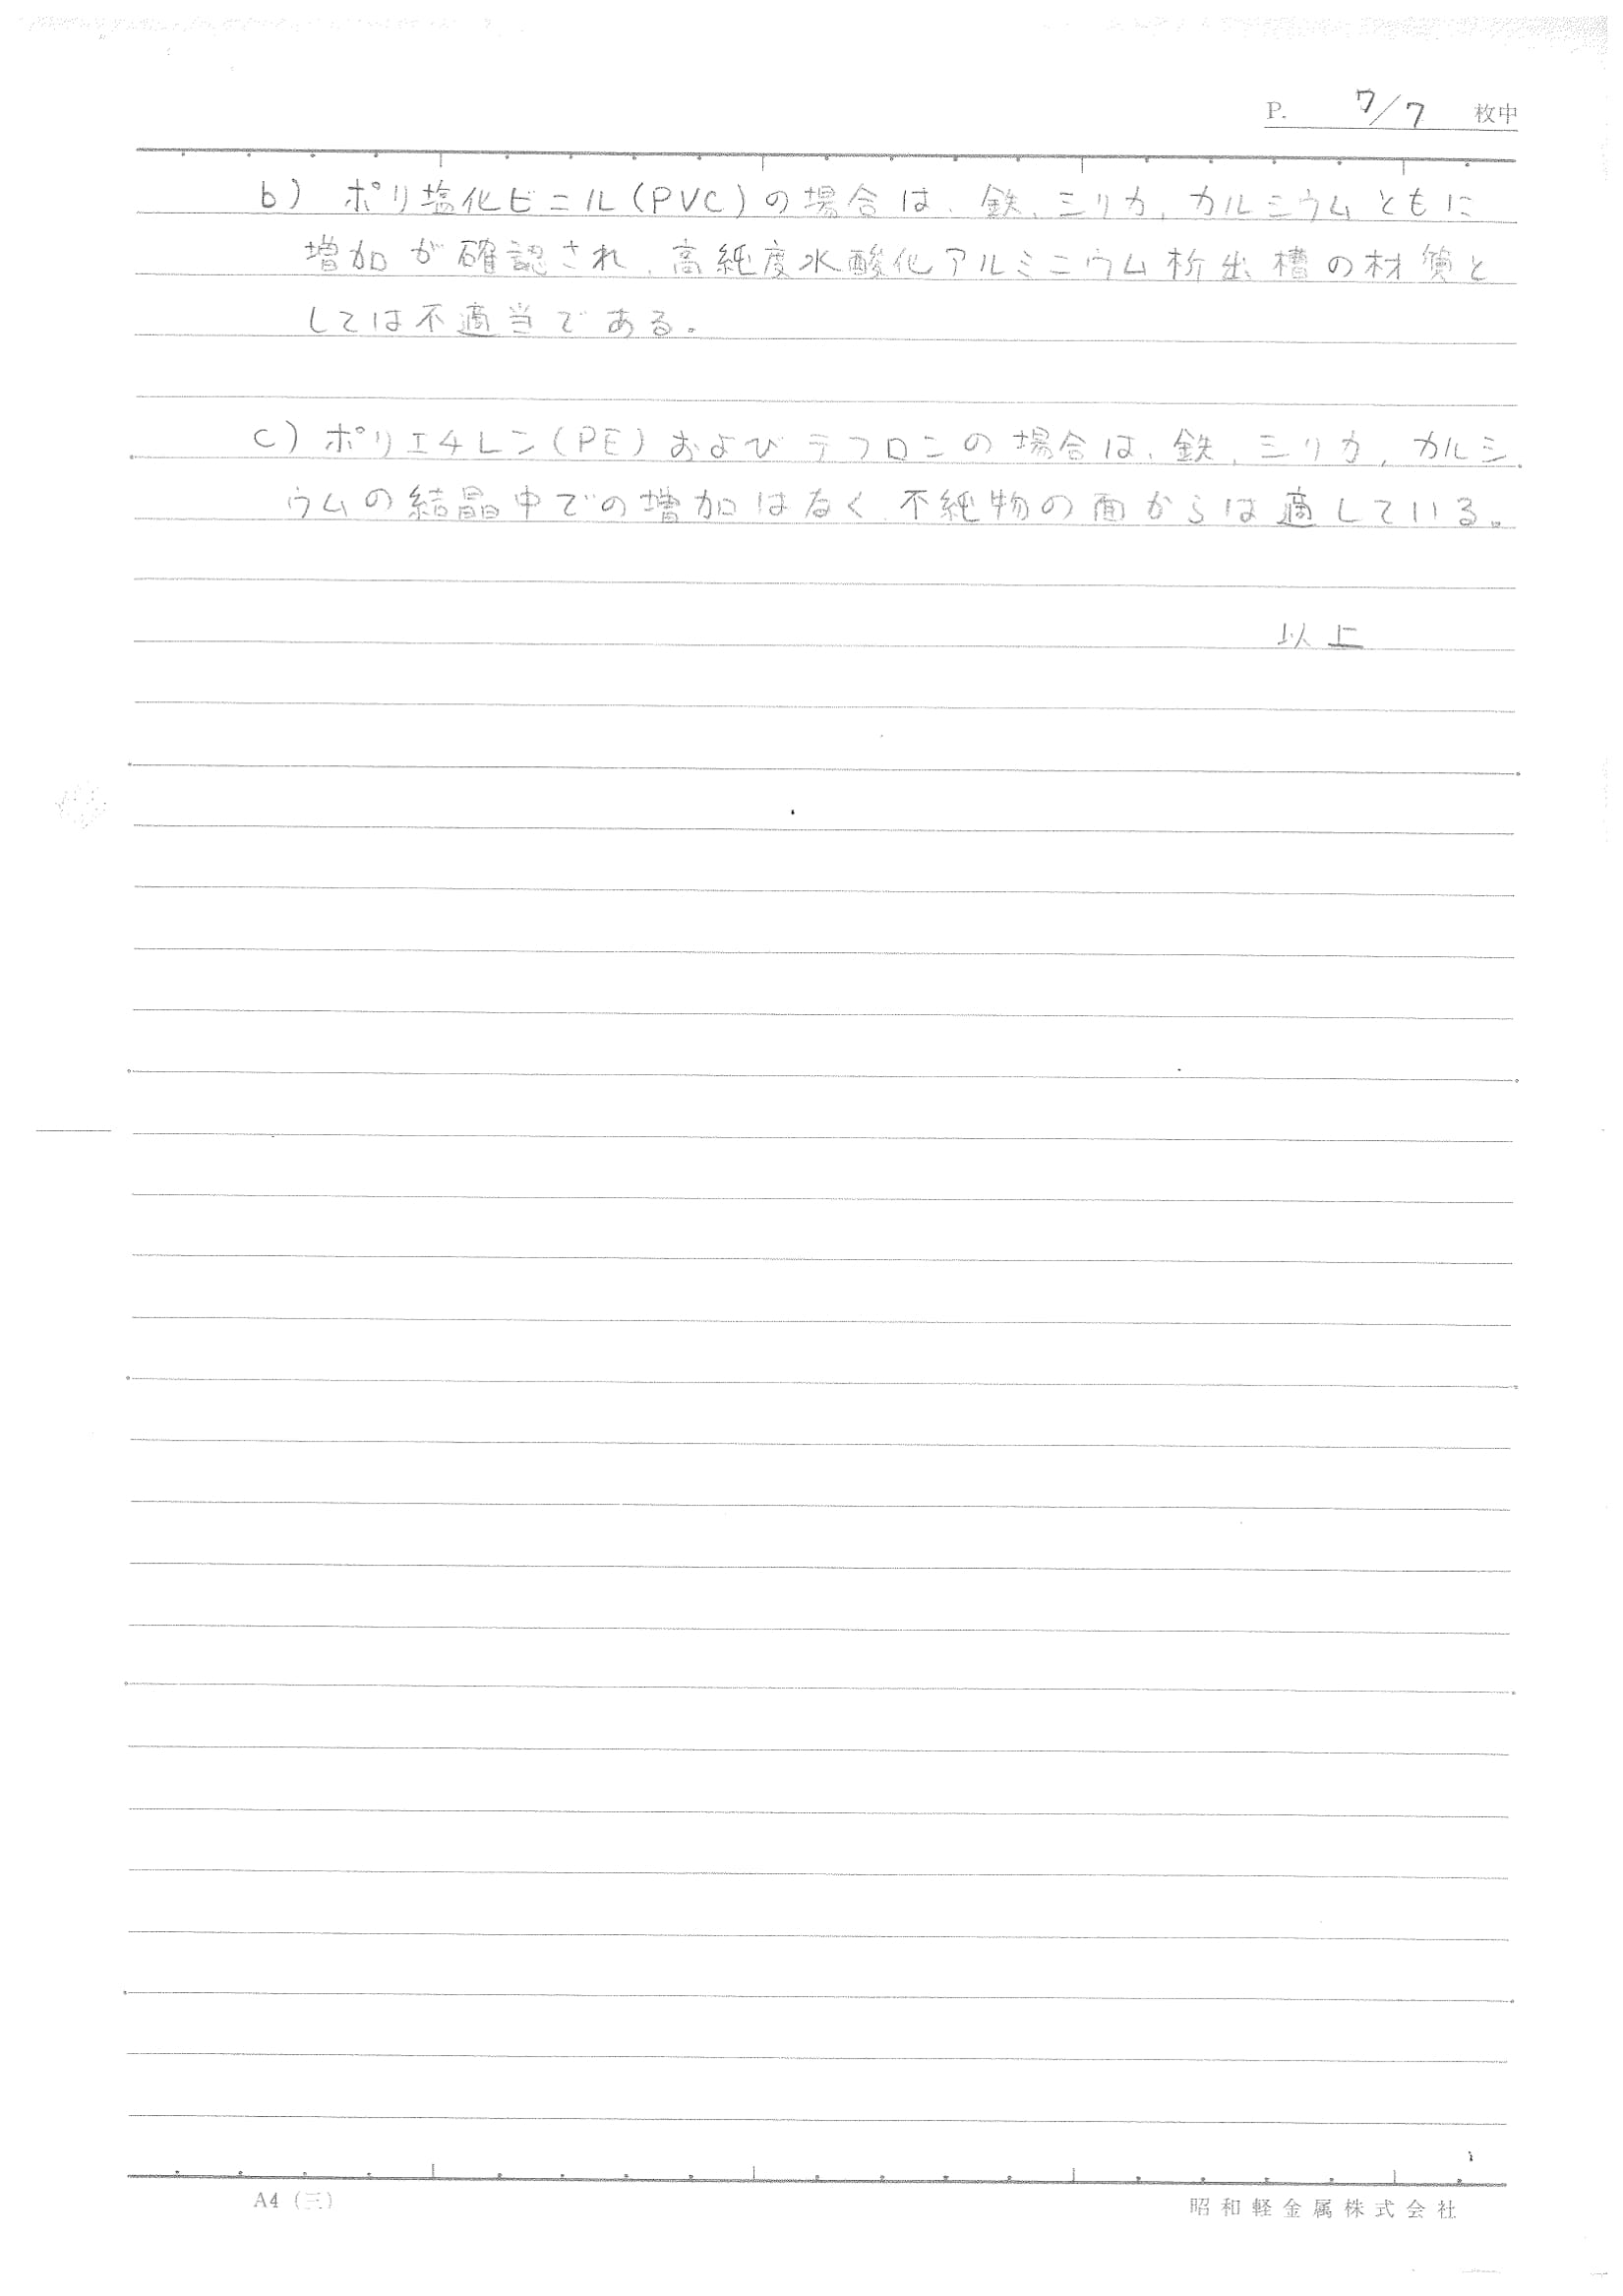 P. 7/7 枚中
b) ポリ塩化ビニル(PVC)の場合は、鉄、シリカ、カルシウムともに
増加が確認され、高純度水酸化アルミニウム析出槽の材質と
しては不適当である。
c) ポリエチレン(PE)およびテフロンの場合は、鉄、シリカ、カルシ
ウムの結晶中での増加はなく、不純物の面からは適している。
以上
A4 (三)
昭和軽金属株式会社